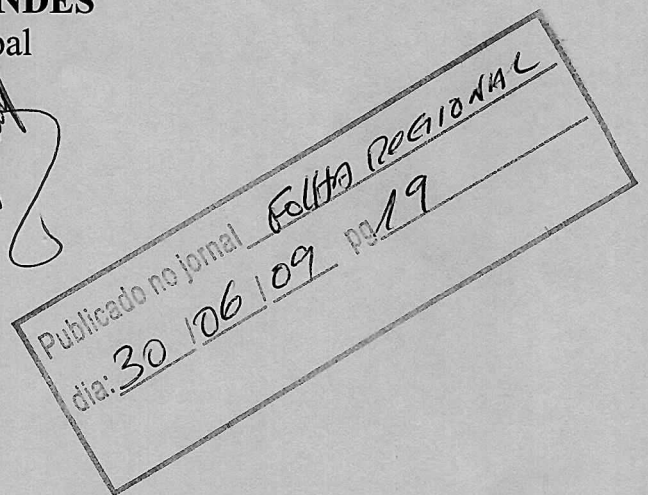 NDES
pal
Publicado no jornal FOLHA REGIONAL
dia: 30 / 06 / 09 pg 19